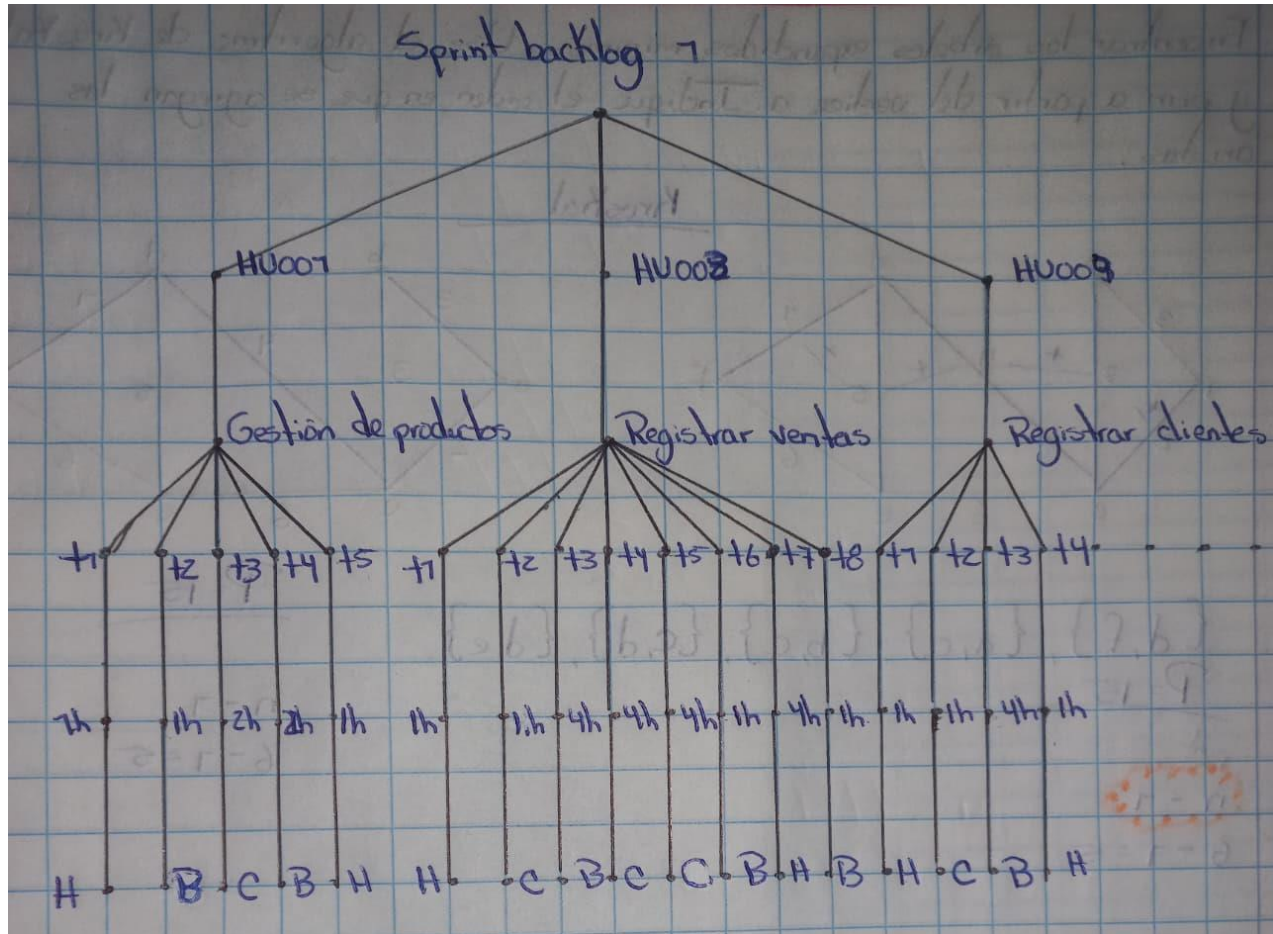 Sprint backlog 1
HU001 HU003 HU009
Gestión de productos Registrar ventas Registrar clientes
t1 t2 t3 t4 t5 t1 t2 t3 t4 t5 t6 t7 t8 t1 t2 t3 t4
1h 1h 2h 2h 1h 1h 1h 4h 4h 4h 1h 4h 1h 1h 1h 4h 1h
H B C B H H C B C C B H B H C B H